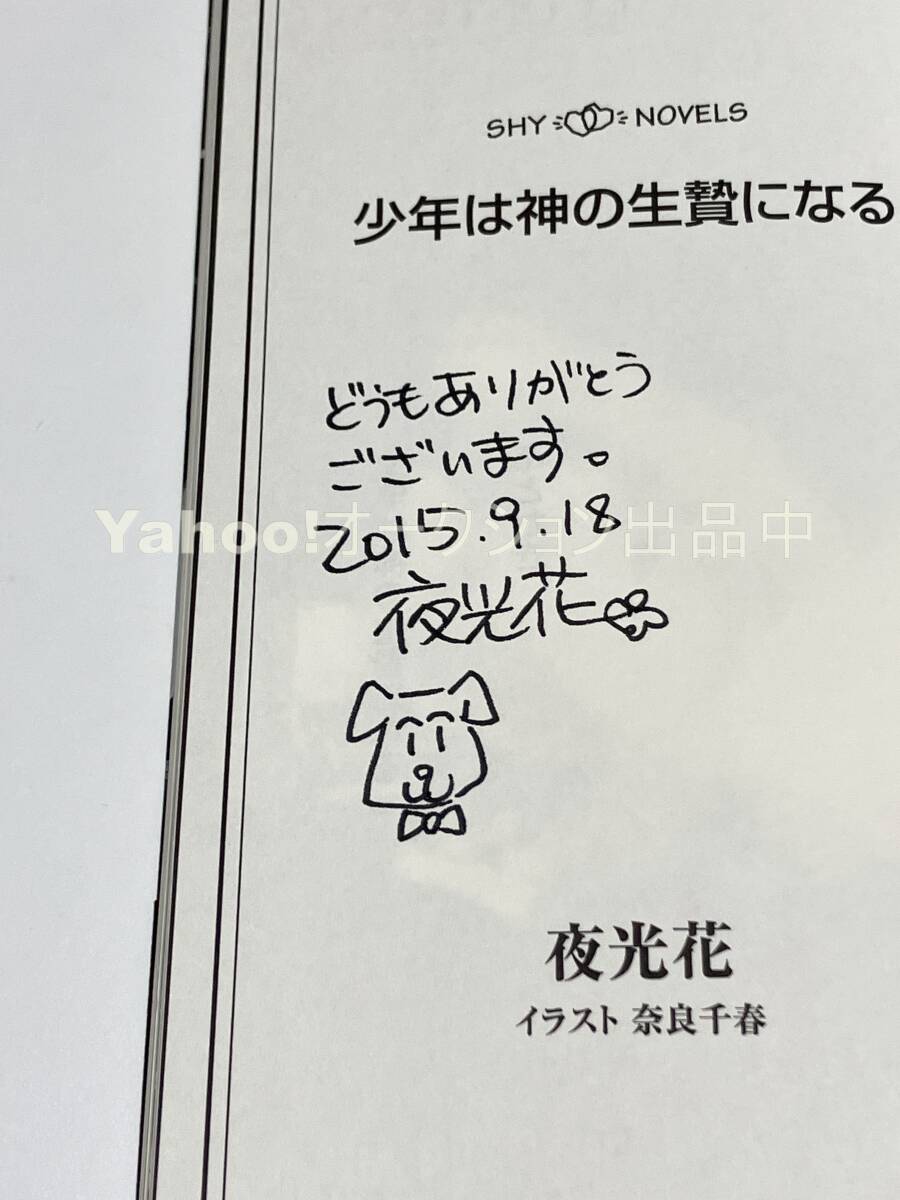 SHY NOVELS
少年は神の生贄になる
どうもありがとう
ございます。
2015.9.18
Yahoo!オークション出品中
夜光花
夜光花
イラスト 奈良千春